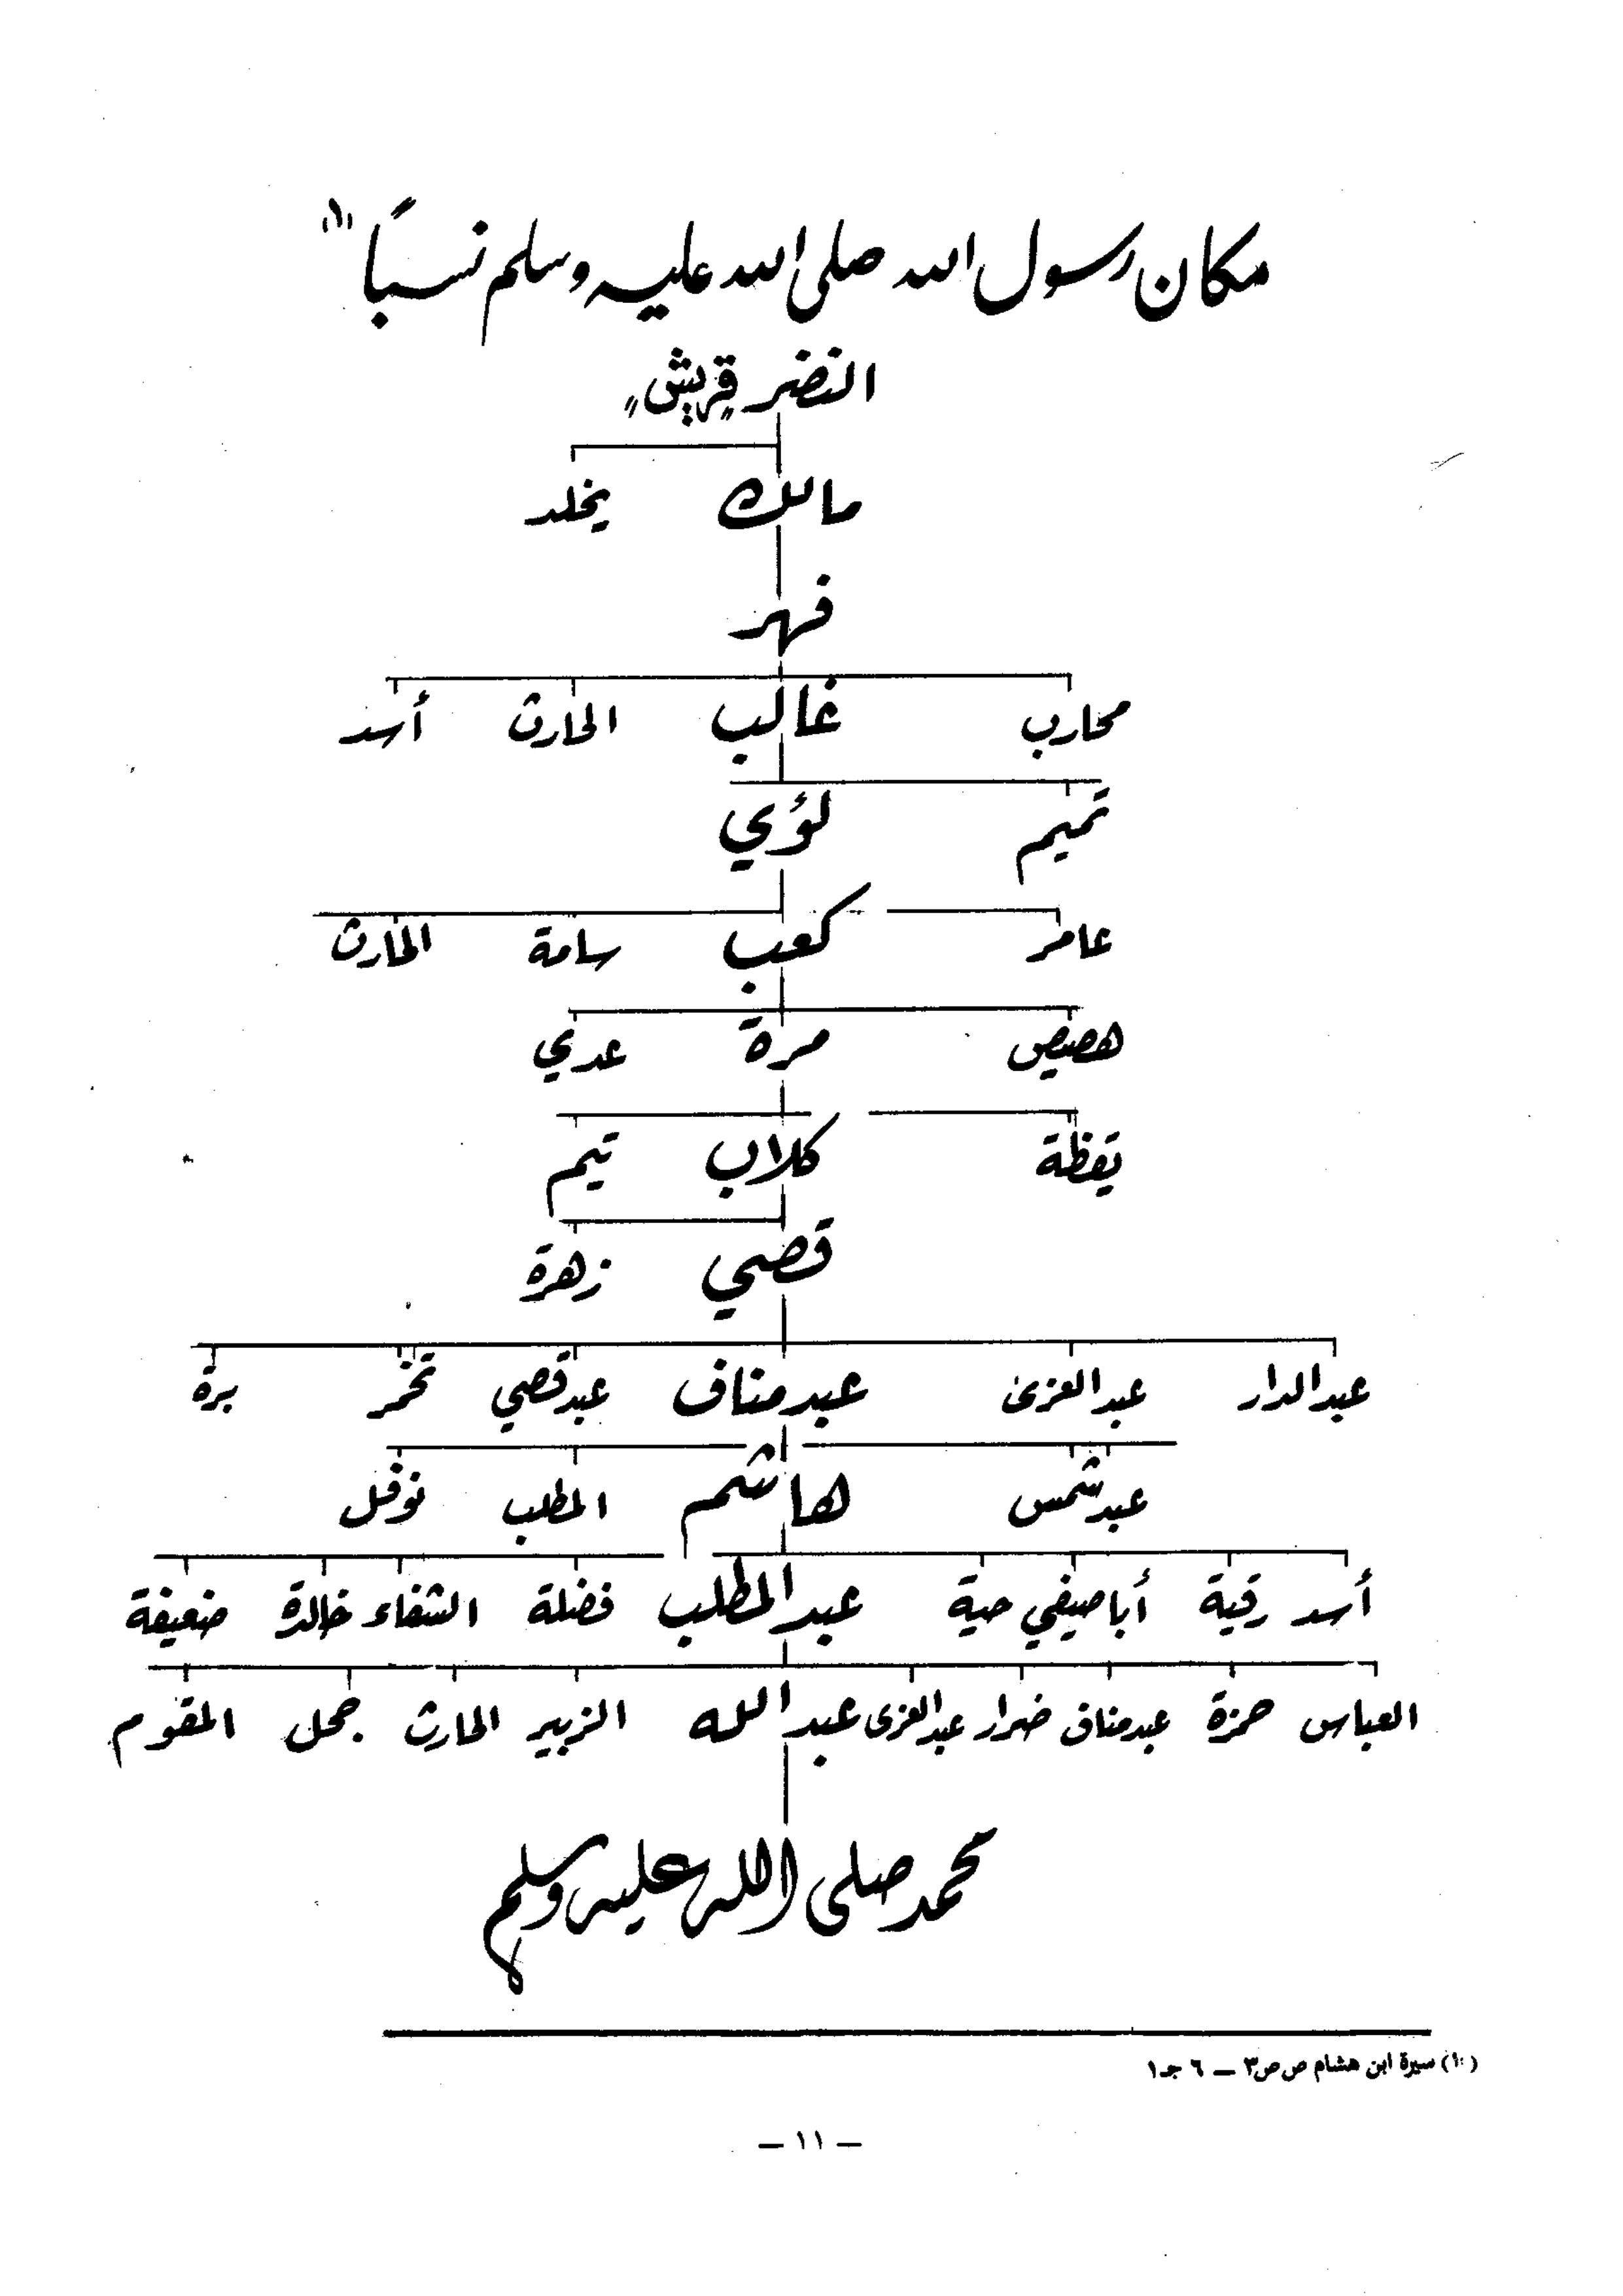 مكان رسول الله صلى الله عليه وسلم نسبًا (١)
النضر "قريش"
مالك يخلد
فهر
محارب غالب الحارث أسد
تميم لؤي
عامر كعب سامة الحارث
هصيص مرة عدي
يقظة كلاب تيم
قصي زهرة
عبد الدار عبد العزى عبد مناف عبد قصي تخمر برة
عبد شمس هاشم المطلب نوفل
أسد رقية أبا صيفي حية عبد المطلب فضلة الشفاء خالدة ضعيفة
العباس حمزة عبد مناف ضرار عبد العزى عبد الله الزبير الحارث جحل المقوم
محمد صلى الله عليه وسلم
(١) سيرة ابن هشام ص ص ٣ – ٦ جـ ١
– ١١ –